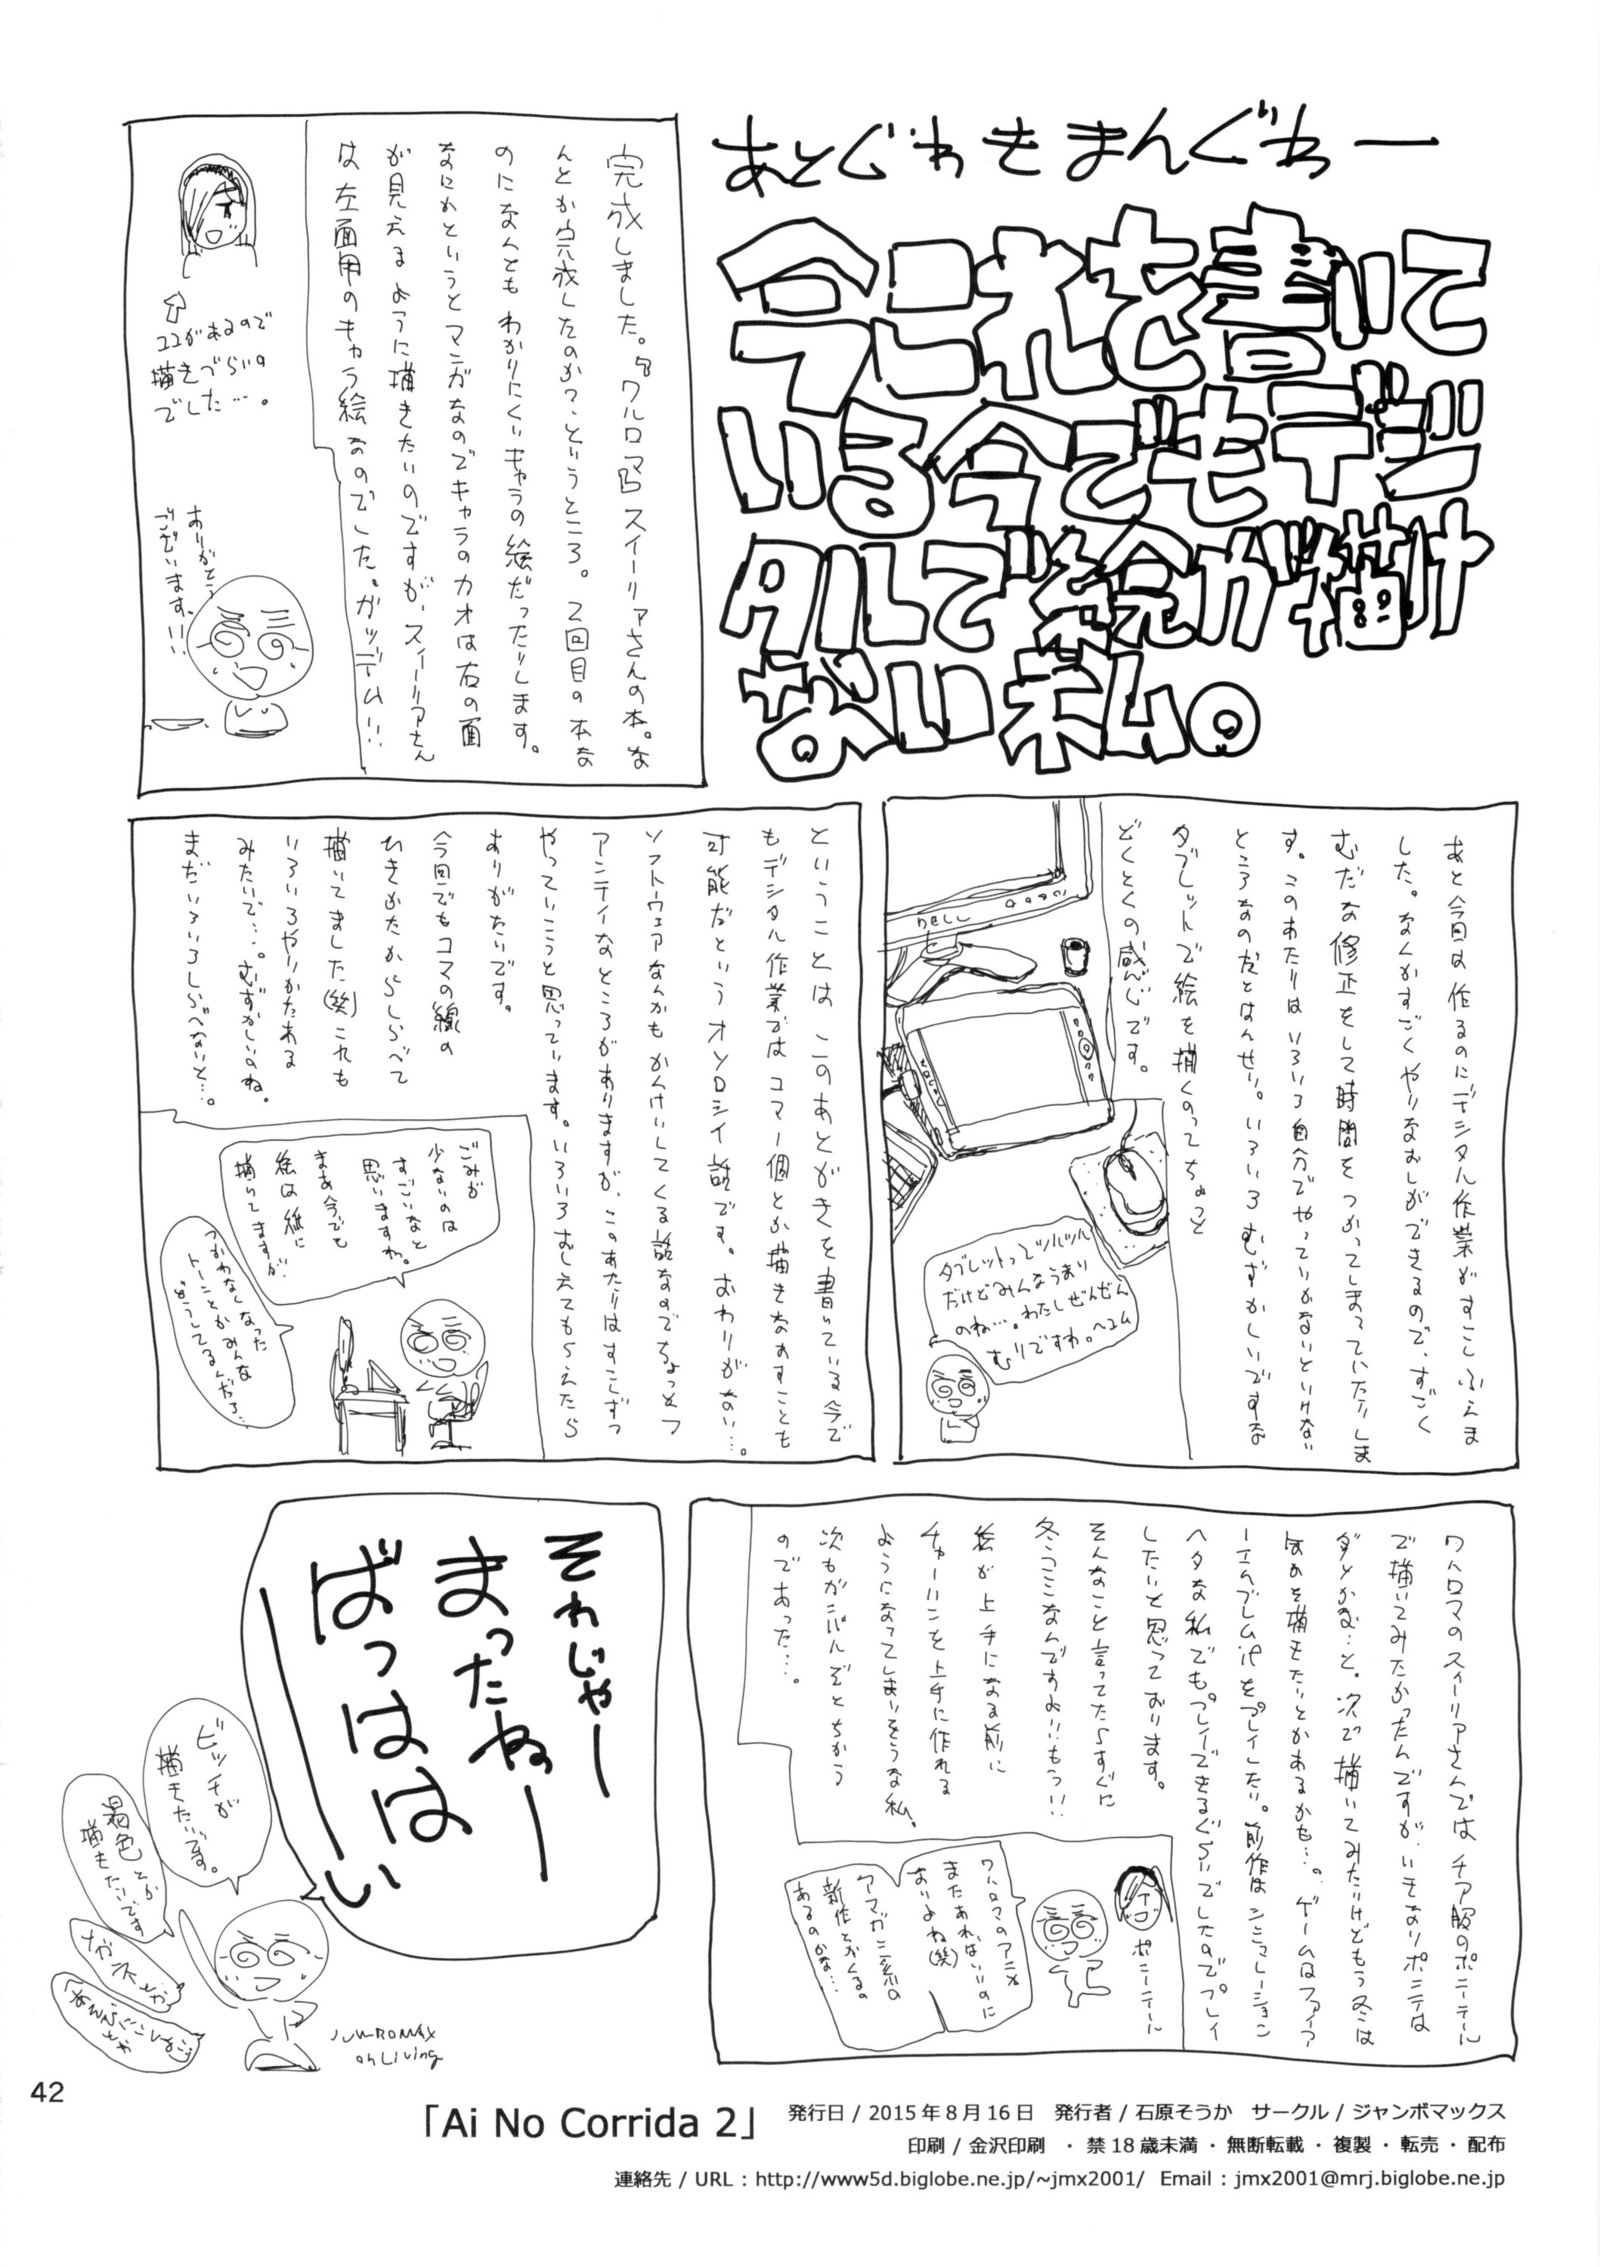 あとぐわきまんぐわー
今これを書いて
いる今でもデジ
タルで絵が描け
ない私。
完成しました。『ワルロマ』スイーリアさんの本。な
んとか完成したのか?というところ。2回目の本な
のになんとも わかりにくいキャラの絵だったりします。
なにかというとマンガなのでキャラのカオは右の面
が見えるように描きたいのですが、スイーリアさん
は左面用のキャラ絵なのでした。ガッデム!!
ココがあるので
描きづらいの
でした…。
ありがとう
ございます!!
あと今回は作るのにデジタル作業がすこしふえま
した。なんかすごくやりなおしができるので、すごく
むだな修正をして時間をつかってしまっていたりしま
す。このあたりはいろいろ自分でやっていかないといけない
ところなのだとはんせい。いろいろむずかしいですな
タブレットで絵を描くのってちょっと
どくとくの感じです。
DELL
タブレットってツルツル
だけどみんなうまい
のね…。わたしぜんぜん
むりですわ。ヘコム
ということは このあとがきを書いている今で
もデジタル作業では コマ一個とか描きなおすことも
可能だという オソロシイ話です。おわりがない…。
ソフトウェアなんかもかんけいしてくる話なのでちょっとフ
アンティなところがありますが、このあたりはすこしずつ
やっていこうと思っています。いろいろおしえてもらえたら
ありがたいです。
今回でもコマの線の
ひきかたからしらべて
描いてました(笑)これも
いろいろやりかたある
みたいで…。むずかしいのね。
まだいろいろしらべないと…。
ごみが
少ないのは
すごいなと
思いますわ。
まあ今でも
絵は紙に
描いてますが。
つかわなくなった
トーンとかみんな
どうしてるんだろ…
ワルロマのスイーリアさんでは チア服のポニーテール
で描いてみたかったんですが、いきなりポニテは
ダメかな…と。次で描いてみたいけどもう冬は
したいと思っております。
そんなこと言ってたらすぐに
冬コミなんですよ!!もうっ!!
絵が上手になる前に
チャーハンを上手に作れる
ようになってしまいそうな私、
次もガンバルぞとちかう
のであった…。
ポニーテール
ワルロマのアニメ
またあればいいのに
ないよね(笑)
アマガミ系の
新作とかくるの
あるのかな…
それじゃー
まったねー
ばっははーい
ビッチが
描きたいです。
褐色とか
描きたいです
メガネとか
JUMBOMAX
on Living
42
「Ai No Corrida 2」
発行日 / 2015年8月16日　発行者 / 石原そうか　サークル / ジャンボマックス
印刷 / 金沢印刷　・禁18歳未満・無断転載・複製・転売・配布
連絡先 / URL : http://www5d.biglobe.ne.jp/~jmx2001/ Email : jmx2001@mrj.biglobe.ne.jp